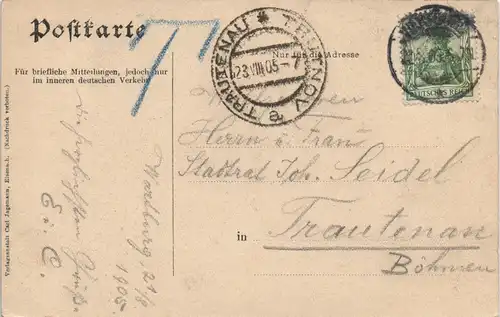 Postkarte
Nur für die Adresse
Für briefliche Mitteilungen, jedoch nur
im inneren deutschen Verkehr
TRAUTENAU * TRUTNOV
23 VIII 05
a
DEUTSCHES REICH
Herrn u. Frau
Stadtrat Joh. Seidel
in Trautenau
Böhmen
Wartburg 21/8
1905.
Die herzlichsten Grüße
E. u. C.
Verlagsanstalt Carl Jagemann, Eisenach. (Nachdruck verboten.)